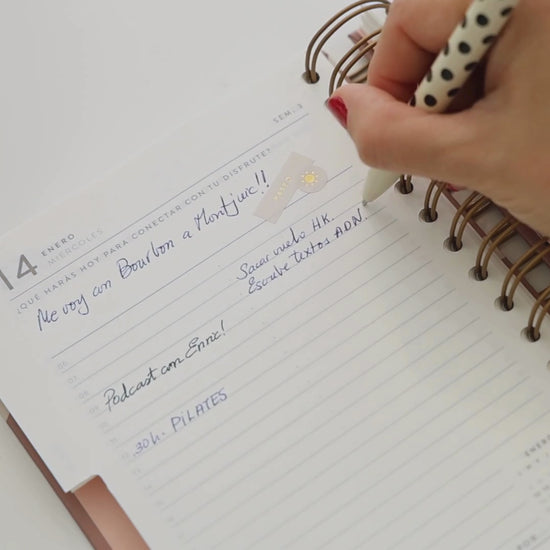 SEM. 3
14 ENERO
MIÉRCOLES
¿QUÉ HARÁS HOY PARA CONECTAR CON TU DISFRUTE?
Me voy con Bourbon a Montjuic!!
PASEO
Sacar vuelo HK.
Escribe textos ADN.
06
07
08
09
Podcast con Enric!
10
11
30h. PILATES
ENERO